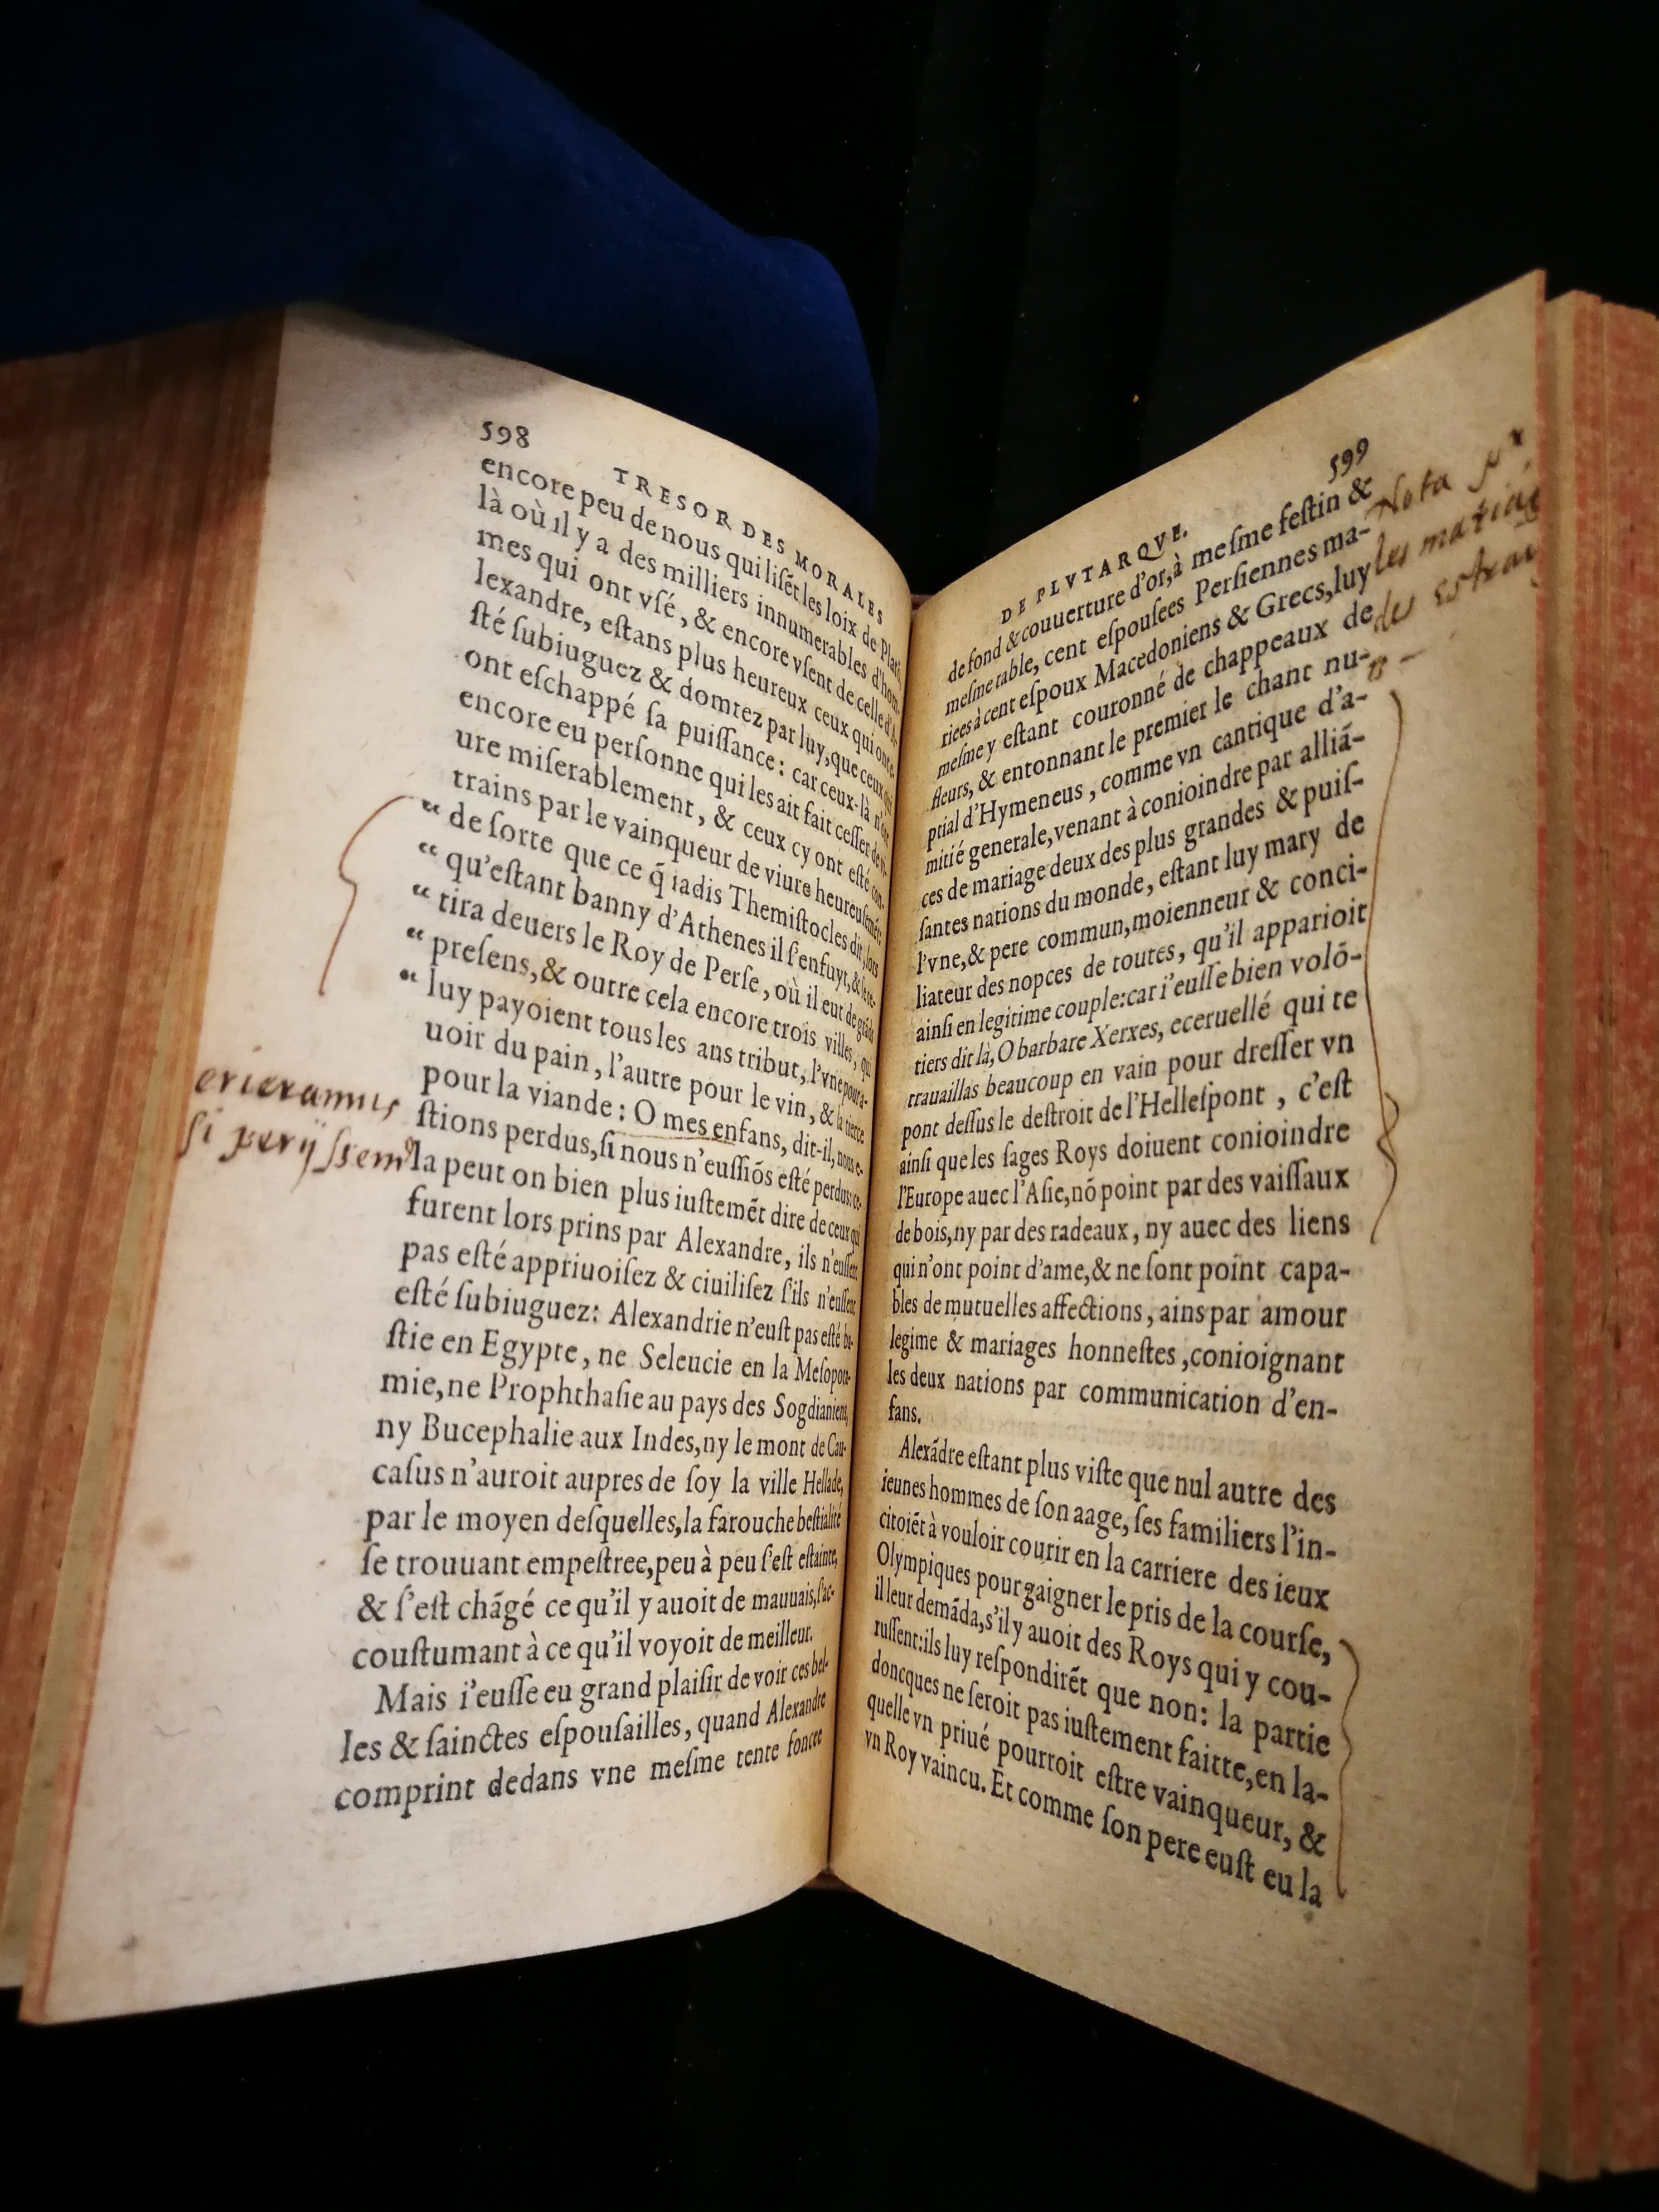 598
TRESOR DES MORALES
encore peu de nous qui liſēt les loix de Plato,
là où il y a des milliers innumerables d'hom-
mes qui ont vſé, & encore vſent de celle d'A-
lexandre, eſtans plus heureux ceux qui ont e-
ſté ſubiuguez & domtez par luy, que ceux qui
ont eſchappé ſa puiſſance: car ceux-là n'ont
encore eu perſonne qui les ait fait ceſſer de vi-
ure miſerablement, & ceux cy ont eſté con-
trains par le vainqueur de viure heureuſemēt:
“ de ſorte que ce q̃ iadis Themiſtocles dit, lors
“ qu'eſtant banny d'Athenes il ſ'enfuyt, & ſe re-
“ tira deuers le Roy de Perſe, où il eut de grāds
“ preſens, & outre cela encore trois villes, qui
“ luy payoient tous les ans tribut, l'vne pour a-
uoir du pain, l'autre pour le vin, & la tierce
pour la viande: O mes enfans, dit-il, nous e-
ſtions perdus, ſi nous n'euſſiōs eſté perdus: ce-
la peut on bien plus iuſtemēt dire de ceux qui
furent lors prins par Alexandre, ils n'euſſent
pas eſté appriuoiſez & ciuiliſez ſ'ils n'euſſent
eſté ſubiuguez: Alexandrie n'euſt pas eſté ba-
ſtie en Egypte, ne Seleucie en la Meſopota-
mie, ne Prophthaſie au pays des Sogdianiens,
ny Bucephalie aux Indes, ny le mont de Cau-
caſus n'auroit aupres de ſoy la ville Hellade,
par le moyen deſquelles, la farouche beſtialité
ſe trouuant empeſtree, peu à peu ſ'eſt eſtainte,
& ſ'eſt chāgé ce qu'il y auoit de mauuais, ſ'ac-
couſtumant à ce qu'il voyoit de meilleur.
Mais i'euſſe eu grand plaiſir de voir ces bel-
les & ſainctes eſpouſailles, quand Alexandre
comprint dedans vne meſme tente foncee
erieramus
ſi perijſſem
599
DE PLVTARQVE.
de fond & couuerture d'or, à meſme feſtin &
meſme table, cent eſpouſees Perſiennes ma-
riees à cent eſpoux Macedoniens & Grecs, luy
meſme y eſtant couronné de chappeaux de
fleurs, & entonnant le premier le chant nu-
ptial d'Hymeneus, comme vn cantique d'a-
mitié generale, venant à conioindre par alliā-
ces de mariage deux des plus grandes & puiſ-
ſantes nations du monde, eſtant luy mary de
l'vne, & pere commun, moienneur & conci-
liateur des nopces de toutes, qu'il apparioit
ainſi en legitime couple: car i'euſſe bien volō-
tiers dit là, O barbare Xerxes, eceruellé qui te
trauaillas beaucoup en vain pour dreſſer vn
pont deſſus le deſtroit de l'Helleſpont, c'eſt
ainſi que les ſages Roys doiuent conioindre
l'Europe auec l'Aſie, nō point par des vaiſſaux
de bois, ny par des radeaux, ny auec des liens
qui n'ont point d'ame, & ne ſont point capa-
bles de mutuelles affections, ains par amour
legime & mariages honneſtes, conioignant
les deux nations par communication d'en-
fans.
Alexādre eſtant plus viſte que nul autre des
ieunes hommes de ſon aage, ſes familiers l'in-
citoiēt à vouloir courir en la carriere des ieux
Olympiques pour gaigner le pris de la courſe,
il leur demāda, s'il y auoit des Roys qui y cou-
ruſſent: ils luy reſpondirēt que non: la partie
doncques ne ſeroit pas iuſtement faitte, en la-
quelle vn priué pourroit eſtre vainqueur, &
vn Roy vaincu. Et comme ſon pere euſt eu la
Nota
les mariag
des estran